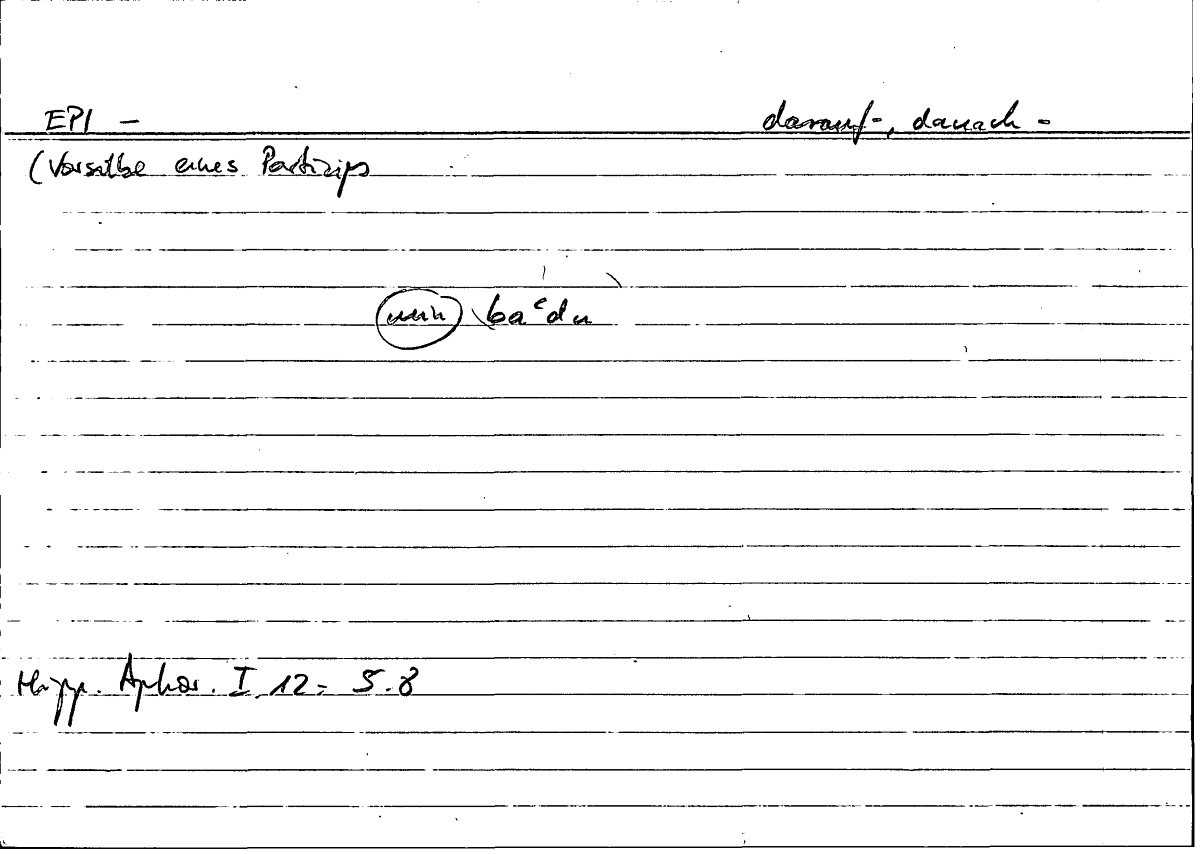 EPI – darauf-, danach -
(Vorsilbe eines Partizips
min baʿdu
Hipp. Aphor. I 12 = 5.8